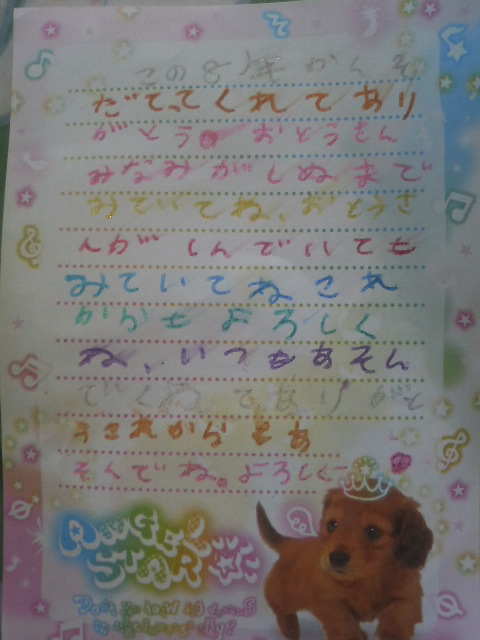 この8年かんそ
だててくれてあり
がとう。おとうさん
みなみがしぬまで
みていてね、おとうさ
んがしんでいても
みていてねこれ
からもよろしく
ね、いつもあそん
でくれてありがと
うこれからもあ
そんでね。よろしくー
ANGEL
STAR